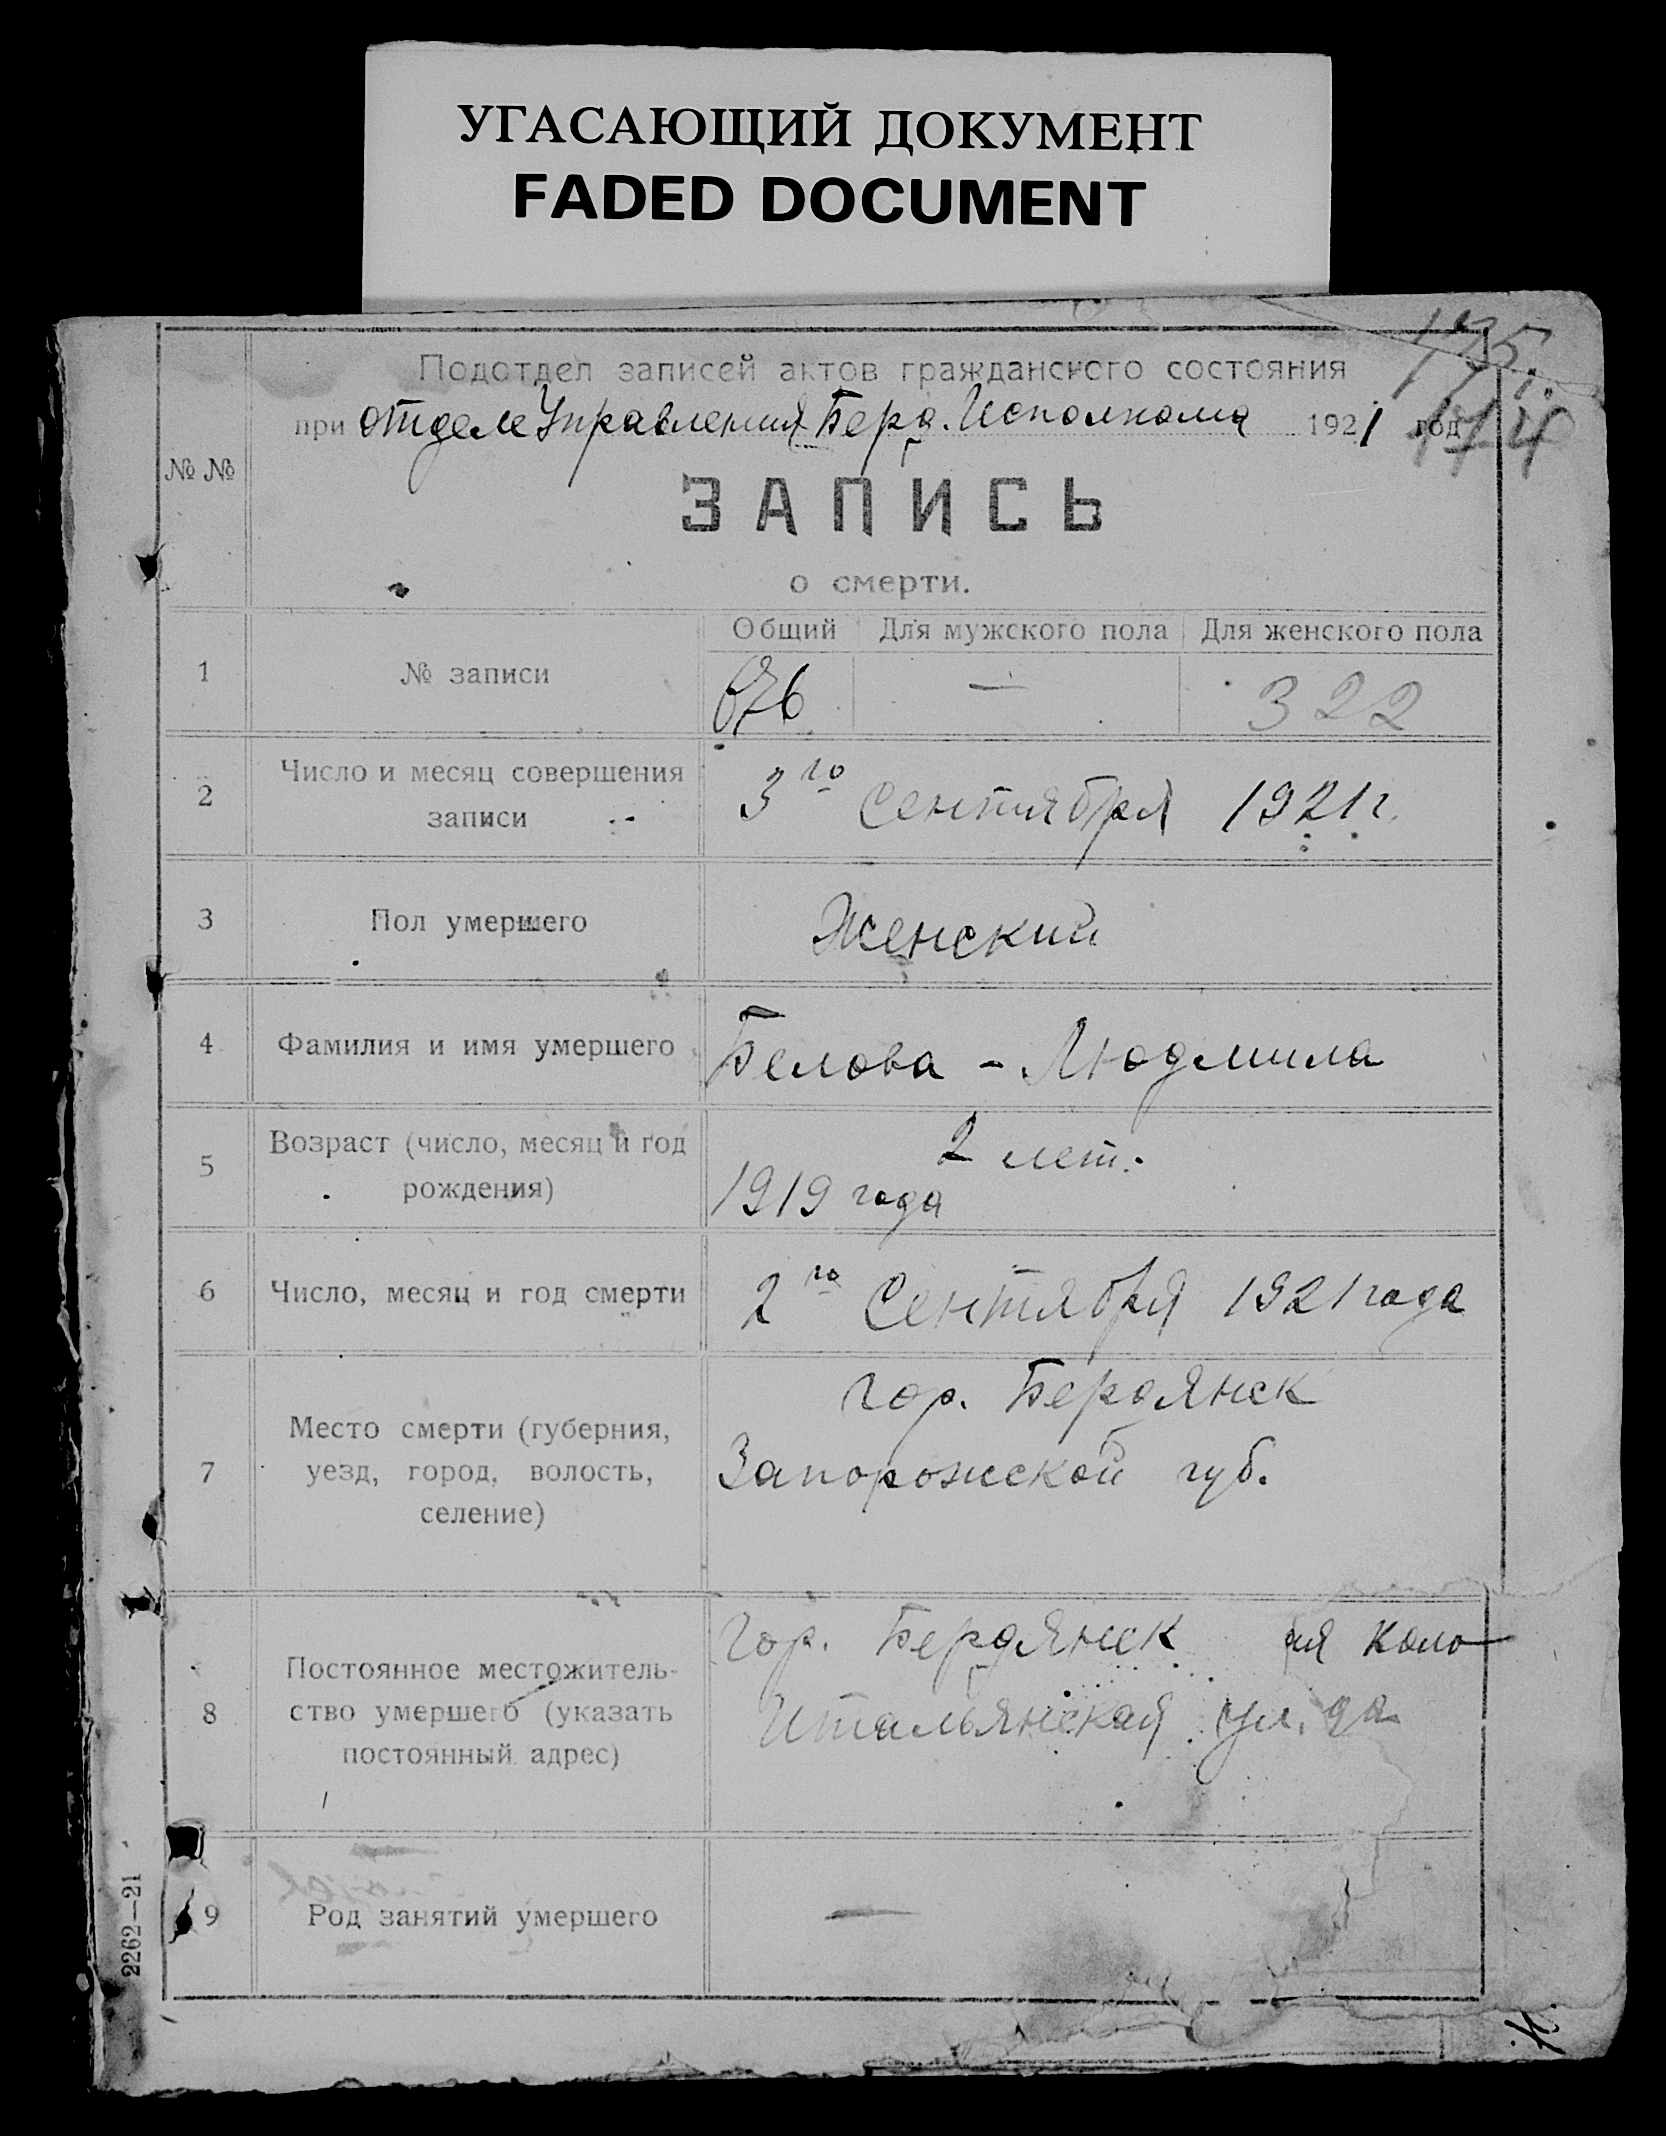 УГАСАЮЩИЙ ДОКУМЕНТ
FADED DOCUMENT
175.
174
Подотдел записей актов гражданского состояния
при отделе Управления Берд. Исполкома 1921 год
№ №
ЗАПИСЬ
о смерти.
Общий Для мужского пола Для женского пола
1 № записи 676 — 322
2 Число и месяц совершения
записи
3го Сентября 1921 г.
3 Пол умершего Женский
4 Фамилия и имя умершего Белова - Людмила
5 Возраст (число, месяц и год
рождения)
2 лет.
1919 года
6 Число, месяц и год смерти 2го Сентября 1921 года
7 Место смерти (губерния,
уезд, город, волость,
селение)
гор. Бердянск
Запорожской губ.
8 Постоянное местожитель-
ство умершего (указать
постоянный адрес)
Гор. Бердянск ая коло
Итальянская ул.
9 Род занятий умершего —
2262—21